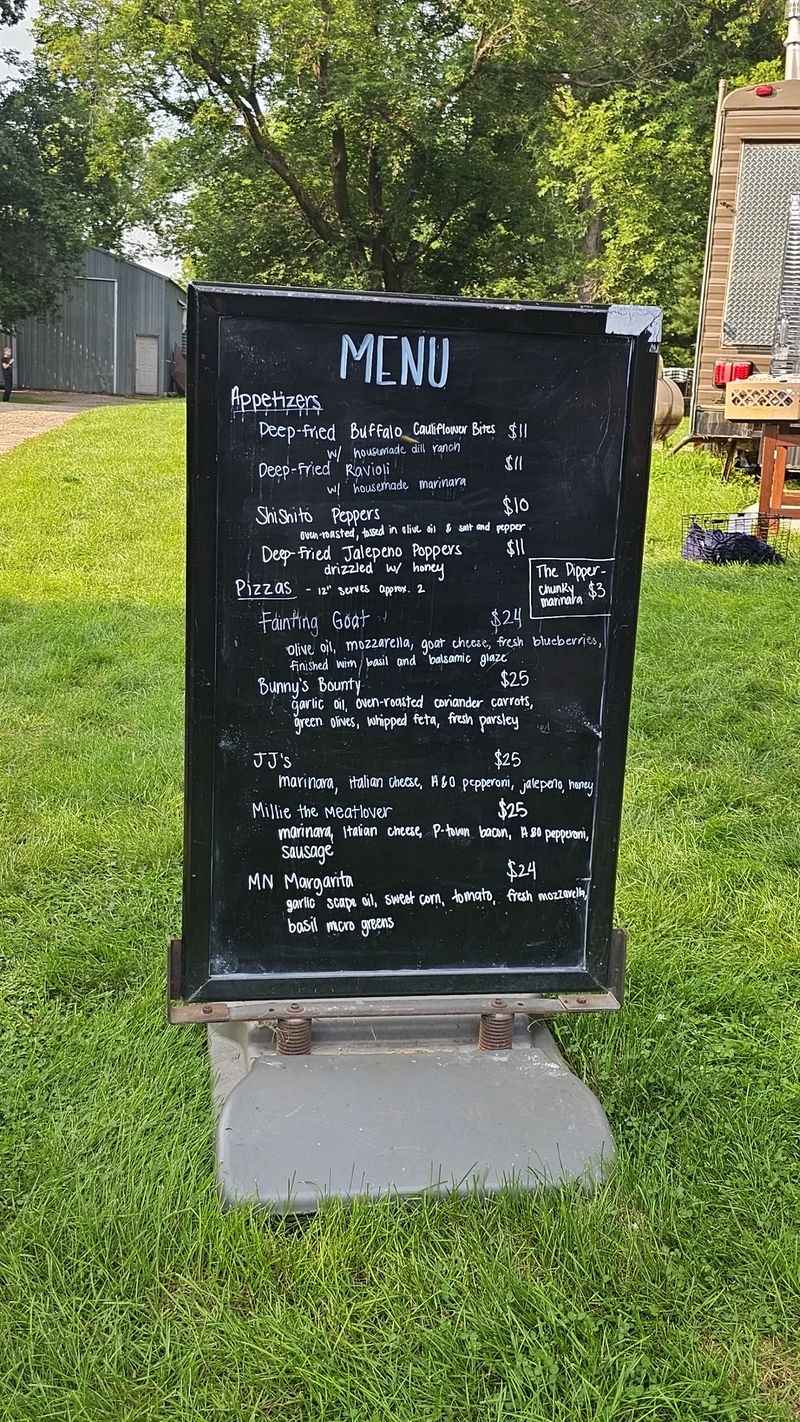 MENU
Appetizers
Deep-fried Buffalo Cauliflower Bites $11
w/ housemade dill ranch
Deep-Fried Ravioli $11
w/ housemade marinara
Shishito Peppers $10
oven-roasted, tossed in olive oil & salt and pepper
Deep-fried Jalepeno Poppers $11
drizzled w/ honey
The Dipper-
chunky $3
marinara
Pizzas - 12" serves approx. 2
Fainting Goat $24
olive oil, mozzarella, goat cheese, fresh blueberries,
finished with basil and balsamic glaze
Bunny's Bounty $25
garlic oil, oven-roasted coriander carrots,
green olives, whipped feta, fresh parsley
JJ's $25
marinara, Italian cheese, A&O pepperoni, jalepeño, honey
Millie the Meatlover $25
marinara, Italian cheese, P-town bacon, A&O pepperoni,
sausage
MN Margarita $24
garlic scape oil, sweet corn, tomato, fresh mozzarella,
basil micro greens